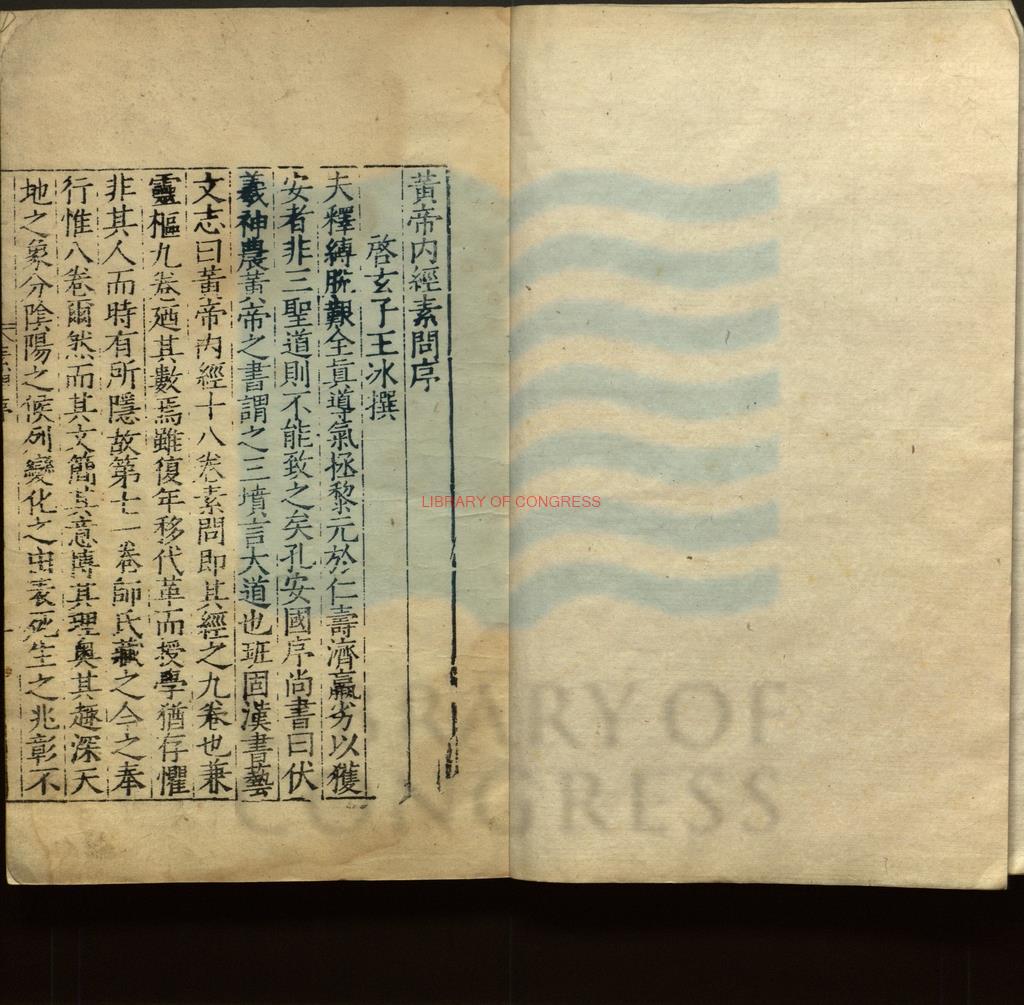 黃帝內經素問序
啓玄子王冰撰
夫釋縛脫艱全眞導氣拯黎元於仁壽濟羸劣以獲
安者非三聖道則不能致之矣孔安國序尚書曰伏
羲神農黃帝之書謂之三墳言大道也班固漢書藝
文志曰黃帝內經十八卷素問即其經之九卷也兼
靈樞九卷廼其數焉雖復年移代革而授學猶存懼
非其人而時有所隱故第七一卷師氏藏之今之奉
行惟八卷爾然而其文簡其意博其理奧其趣深天
地之象分陰陽之候列變化之由表死生之兆彰不
LIBRARY OF CONGRESS
LIBRARY OF
CONGRESS